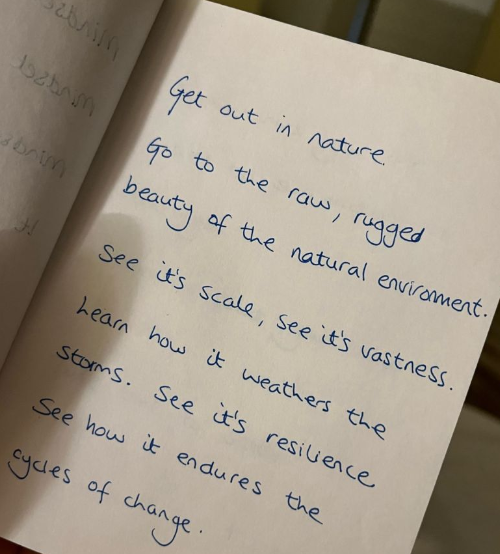 Get out in nature
Go to the raw, rugged
beauty of the natural environment.
See it's scale, see it's vastness.
Learn how it weathers the
storms. See it's resilience
See how it endures the
cycles of change.